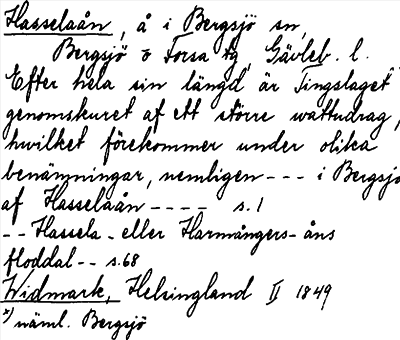 Hasselaån, å i Bergsjö sn,
Bergsjö o Forsa tg, Gävleb. l.
Efter hela sin längd är Tingslaget x)
genomskuret af ett större wattudrag,
hwilket förekommer under olika
benämningar, nemligen --- i Bergsjö
af Hasselaån ---- s. 1
-- Hassela- eller Harmångers-åns
floddal -- s. 68
Widmark, Helsingland II 1849
x) näml. Bergsjö